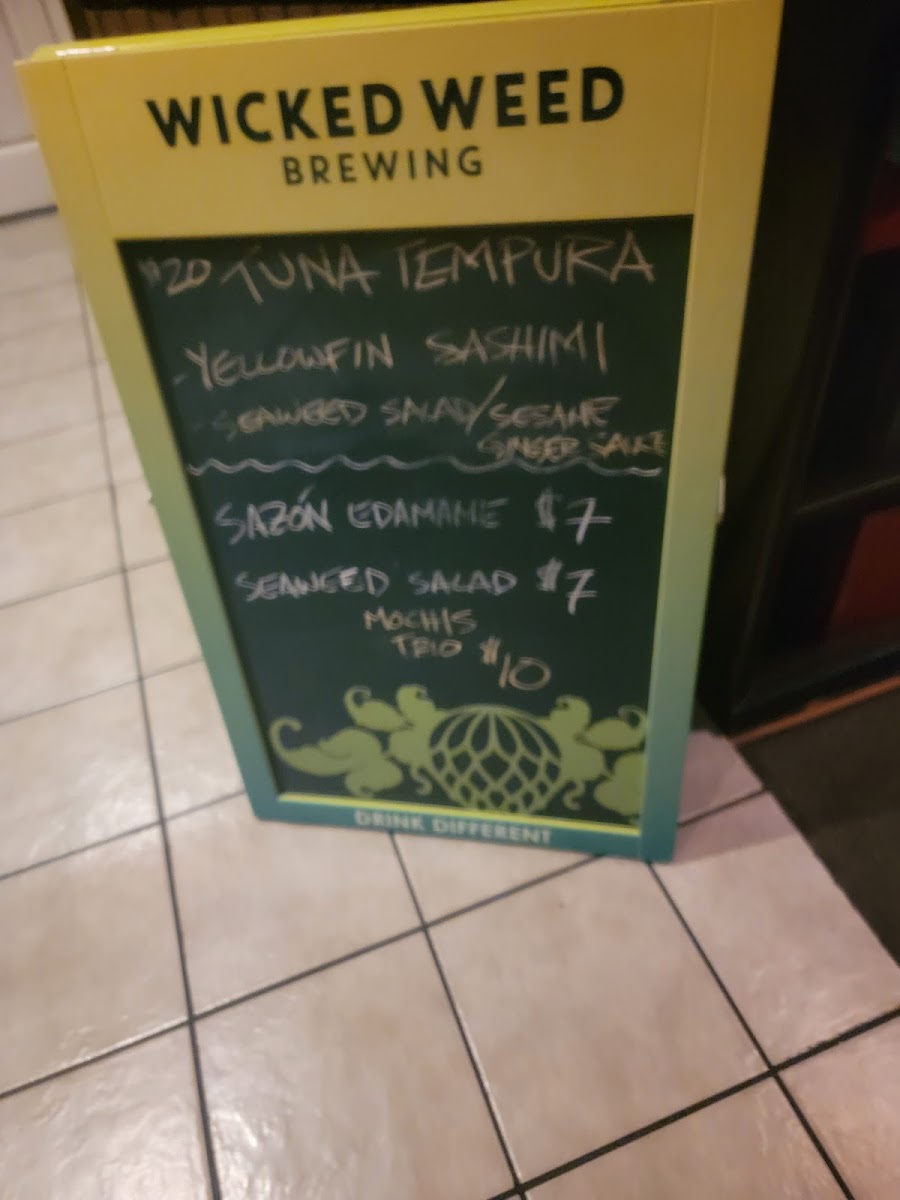 WICKED WEED
BREWING
$20 TUNA TEMPURA
-YELLOWFIN SASHIMI
-SEAWEED SALAD/SESAME
GINGER SAUCE
SAZÓN EDAMAME $7
SEAWEED SALAD $7
MOCHIS
TRIO $10
DRINK DIFFERENT